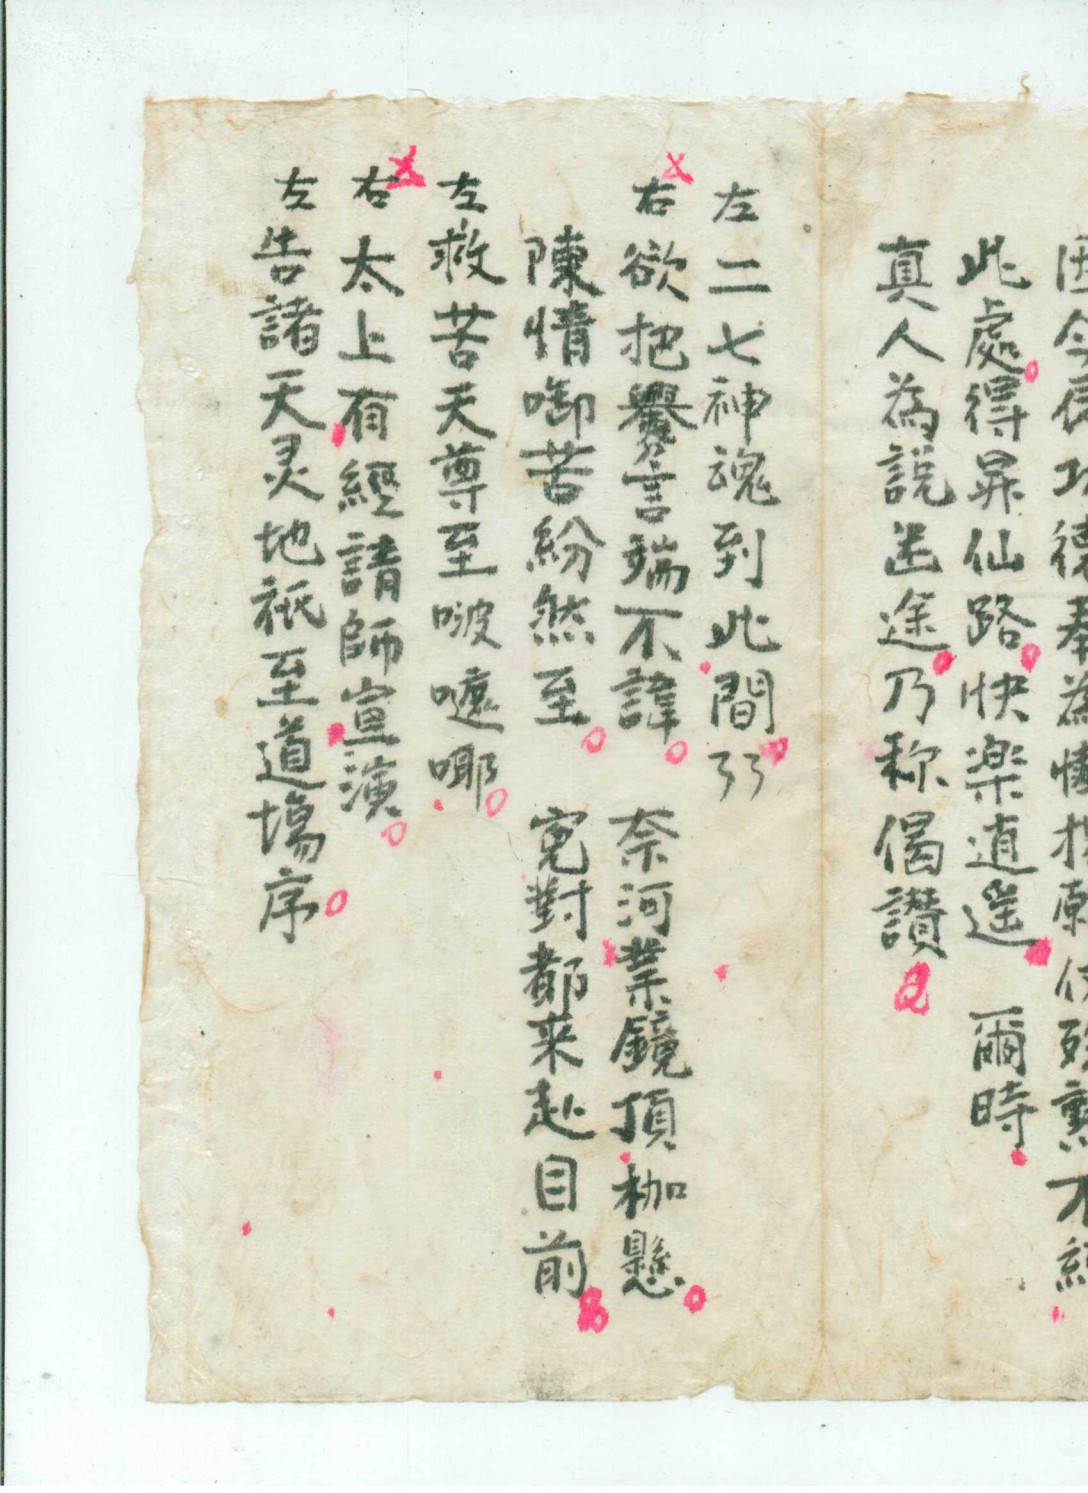 因今辰功德奉為
此處得昇仙路快楽逍遥　爾時
真人為說迷途乃称偈讚
左二七神魂到此間
右欲把釁言端不諱　奈河業鏡頂枷懸
陳情啣苦紛然至　寃對都来赴目前
左救苦天尊至啵嚧哪
右太上有經請師宣演
左告諸天灵地祇至道場序